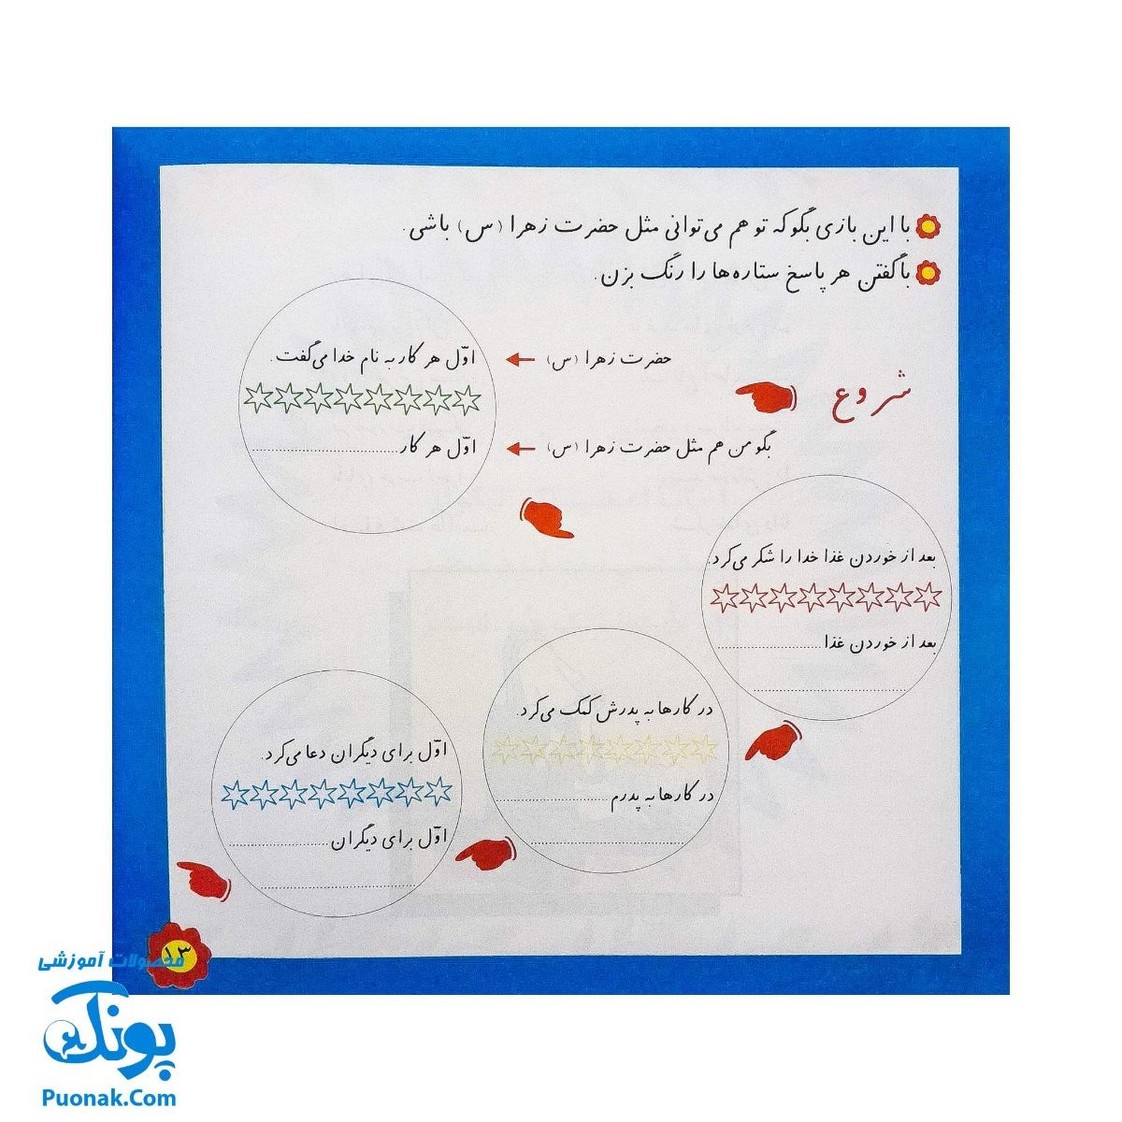 با این بازی بگو که تو هم می‌توانی مثل حضرت زهرا (س) باشی.
با گفتن هر پاسخ ستاره‌ها را رنگ بزن.
شروع
حضرت زهرا (س)
اوّل هر کار به نام خدا می‌گفت.
بگو من هم مثل حضرت زهرا (س)
اوّل هر کار....................
بعد از خوردن غذا خدا را شکر می‌کرد.
بعد از خوردن غذا....................
....................
در کارها به پدرش کمک می‌کرد.
در کارها به پدرم....................
....................
اوّل برای دیگران دعا می‌کرد.
اوّل برای دیگران....................
....................
۱۳
محصولات آموزشی
پونک
Puonak.Com